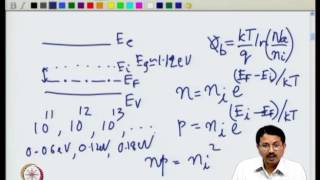 Ec
Ei Eg≈1.12eV
EF
EV
10^11, 10^12, 10^13, ...
0.06eV, 0.12eV, 0.18eV
φb = kT/q ln(Na/ni)
n = ni e^(EF-Ei)/kT
p = ni e^(Ei-EF)/kT
np = ni^2